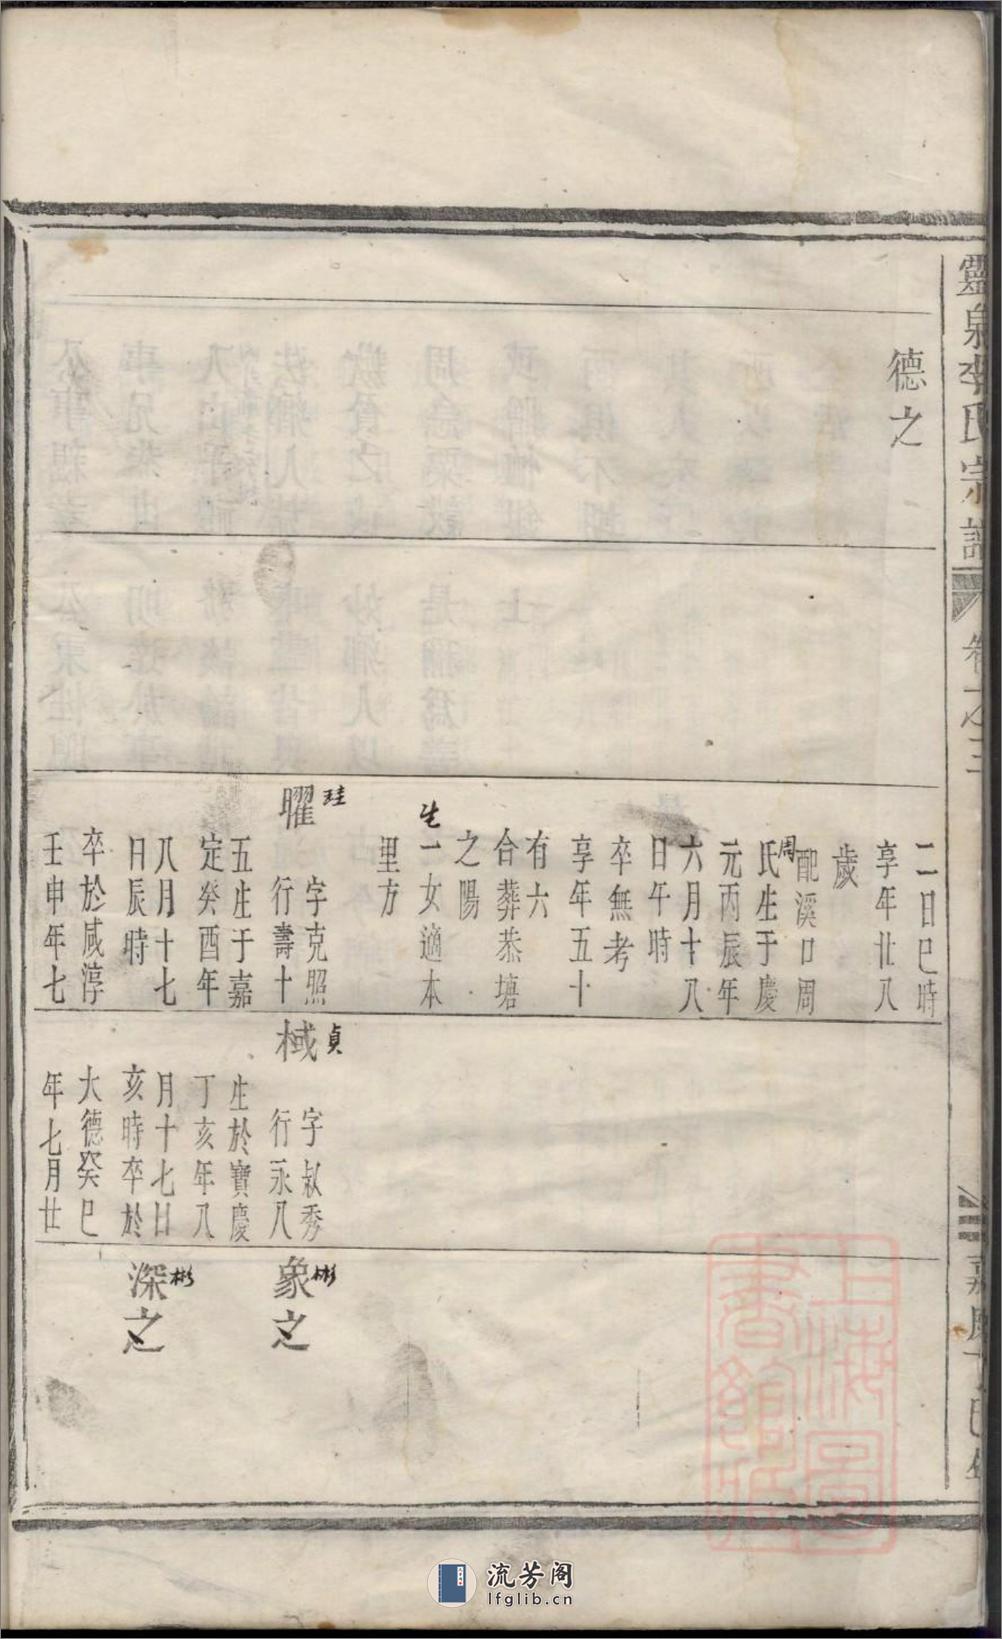 靈泉李氏宗譜
卷之三
嘉慶丁巳年
德之
二日巳時
享年廿八
歲
配溪口周
周
氏生于慶
元丙辰年
六月十八
日午時
卒無考
享年五十
有六
合葬恭塘
之陽
生
一女適本
里方
珪
曜
字克照
行壽十
五生于嘉
定癸酉年
八月十七
日辰時
卒於咸淳
壬申年七
貞
棫
字叔秀
行永八
生於寶慶
丁亥年八
月十七日
亥時卒於
大德癸巳
年七月廿
彬
象之
彬
深之
上海圖
書館藏
流芳阁
lfglib.cn